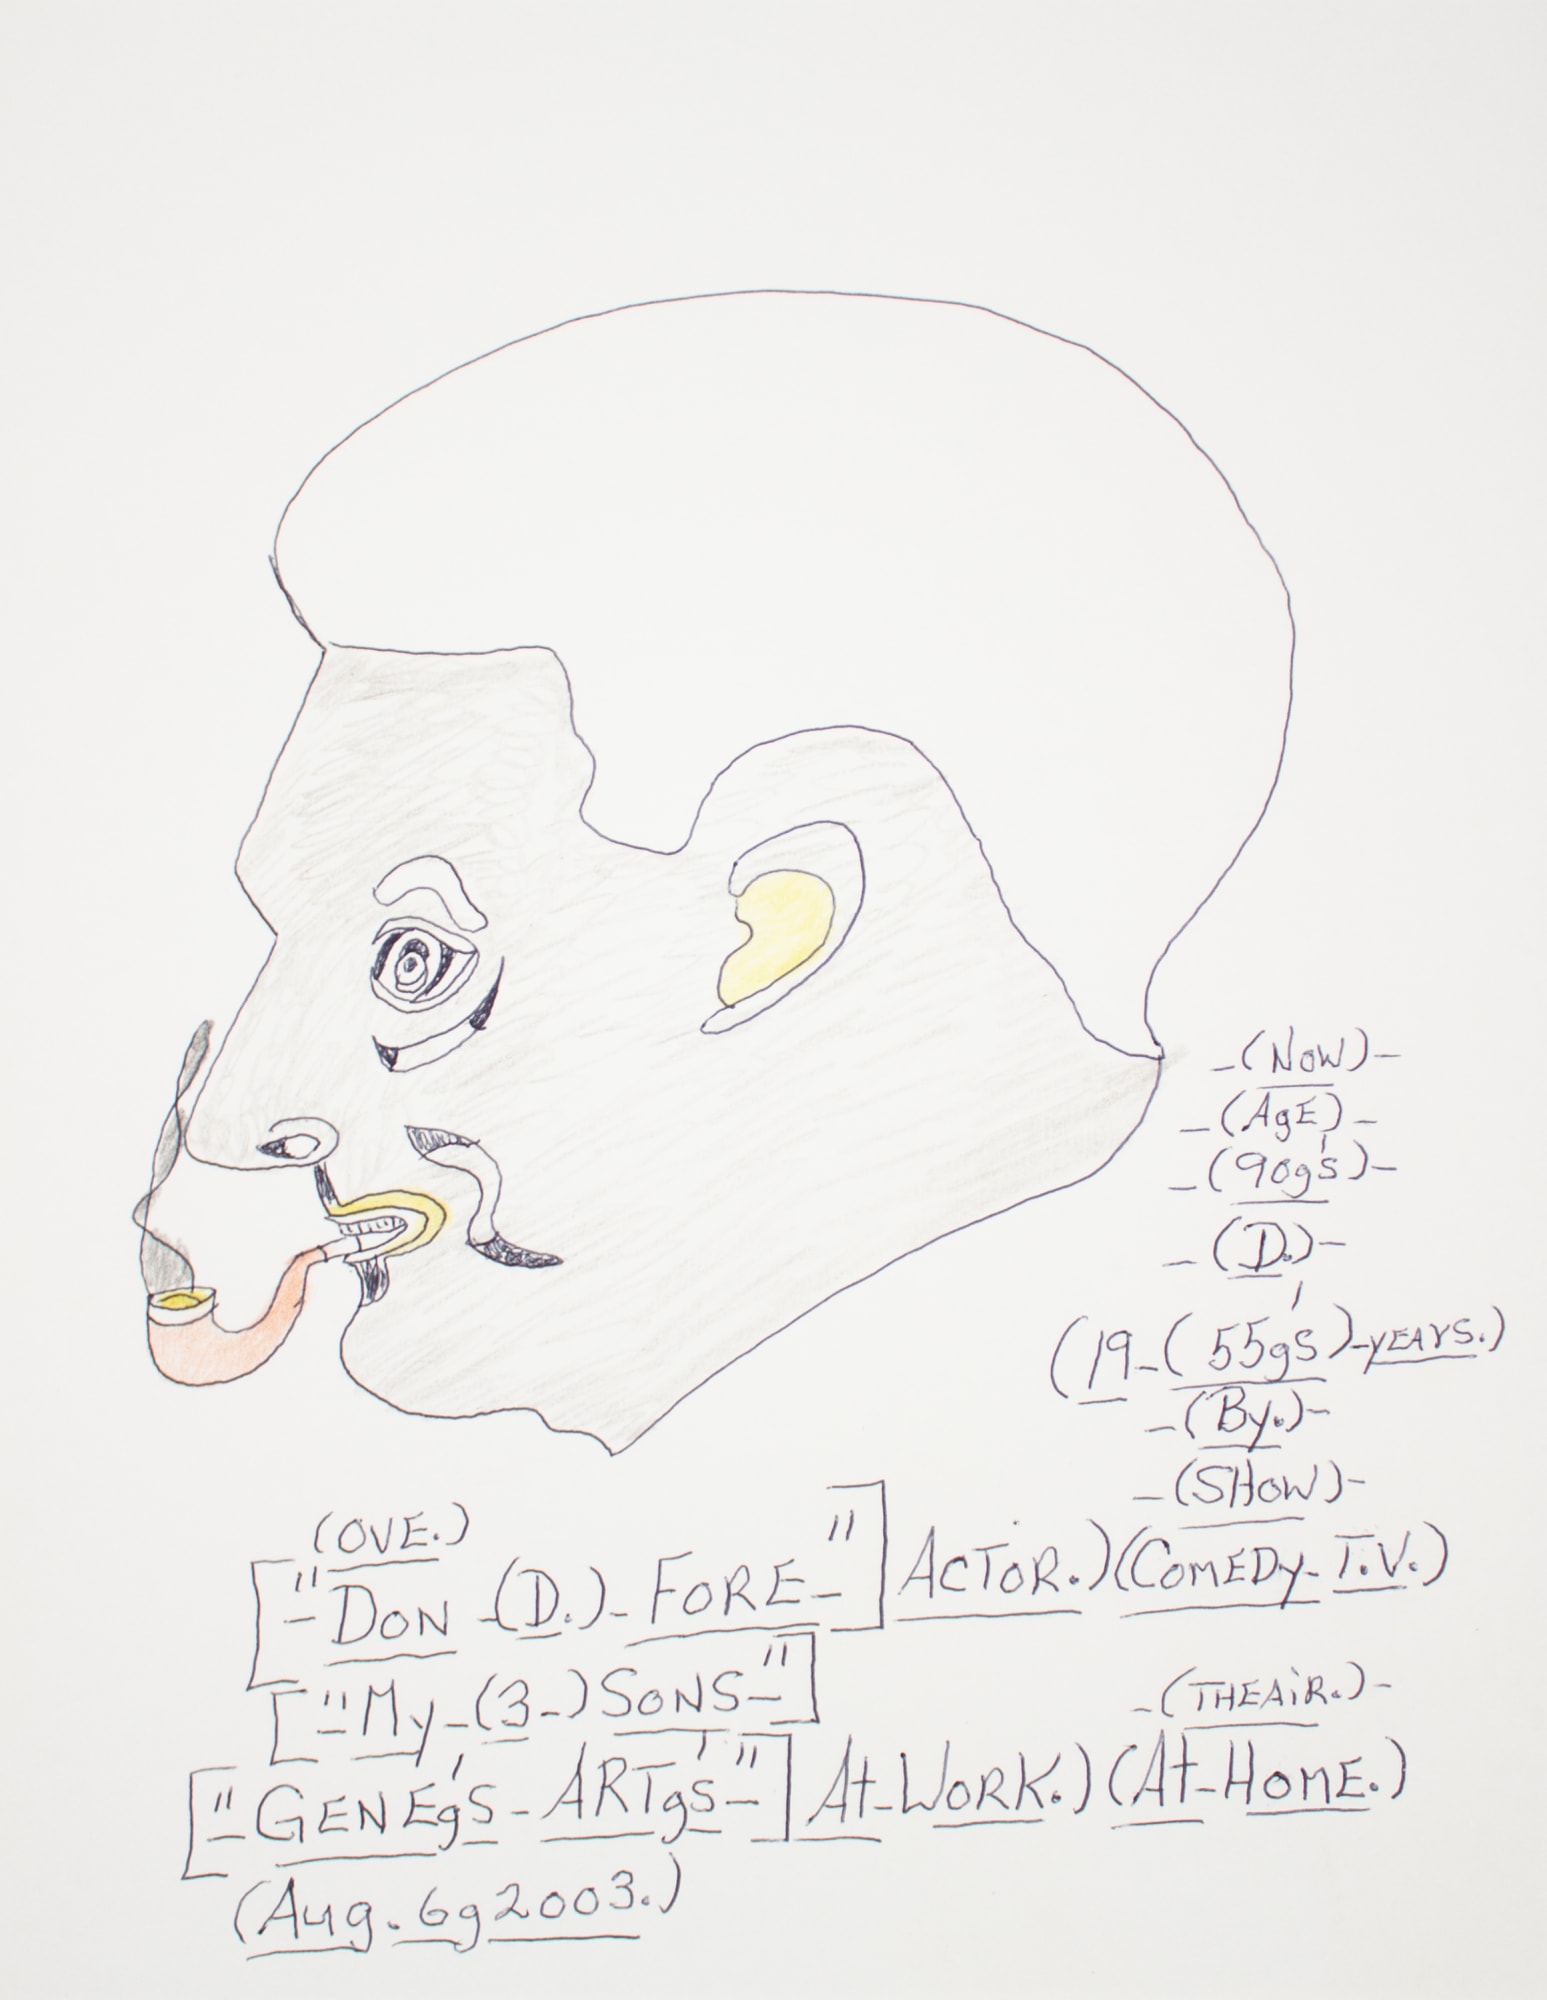 -(NOW)-
-(AgE)-
-(90g's)-
-(D.)-
(19-(55g's)-yEArS.)
-(By.)-
-(SHOW)-
(OVE.)
["-DON-(D.)-FORE-"] ACTOR.)(COMEDy-T.V.)
["-My-(3-)SONS-"]
-(THEAiR.)-
["-GENEg'S-ARTg'S-"] At-WORK.)(At-HOME.)
(Aug. 6g2003.)